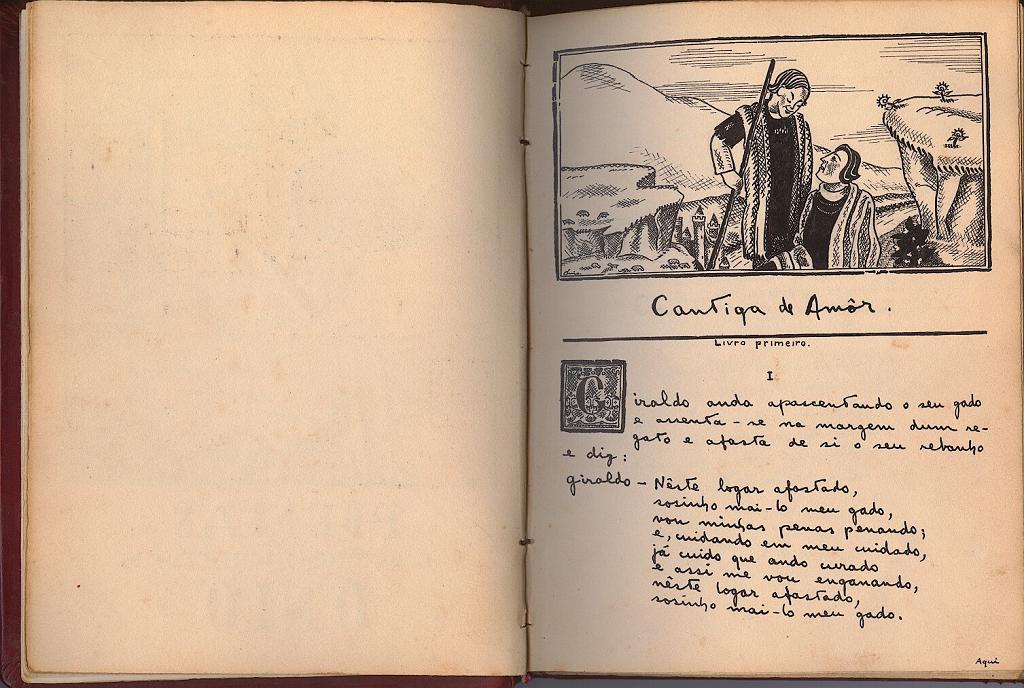 Cantiga de Amôr.
Livro primeiro.
I
Giraldo anda apascentando o seu gado
e assenta-se na margem dum re-
gato e afasta de si o seu rebanho
e diz:
giraldo - Nêste logar afastado,
sosinho mai-lo meu gado,
vou minhas penas penando;
e, cuidando em meu cuidado,
já cuido que ando curado
e assi me vou enganando,
nêste logar afastado,
sosinho mai-lo meu gado.
Aqui